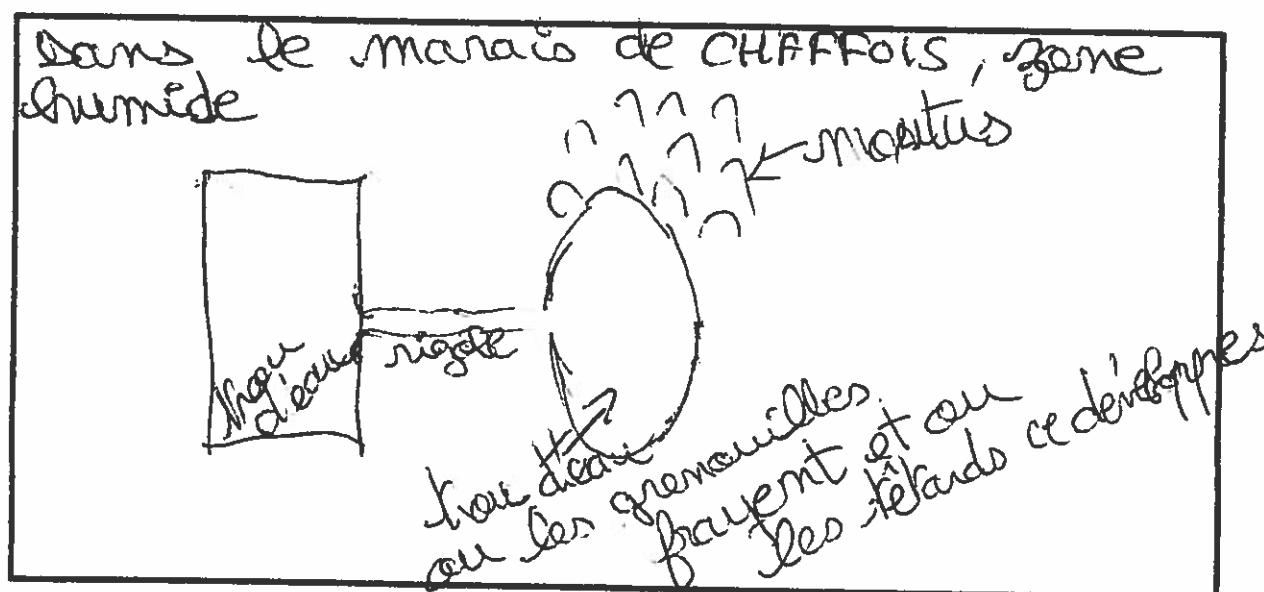 Dans le marais de CHAFFOIS, zone
humide
mostus
trou
d'eau
rigole
trou d'eau
ou les grenouilles
frayent et ou
les têtards ce développes